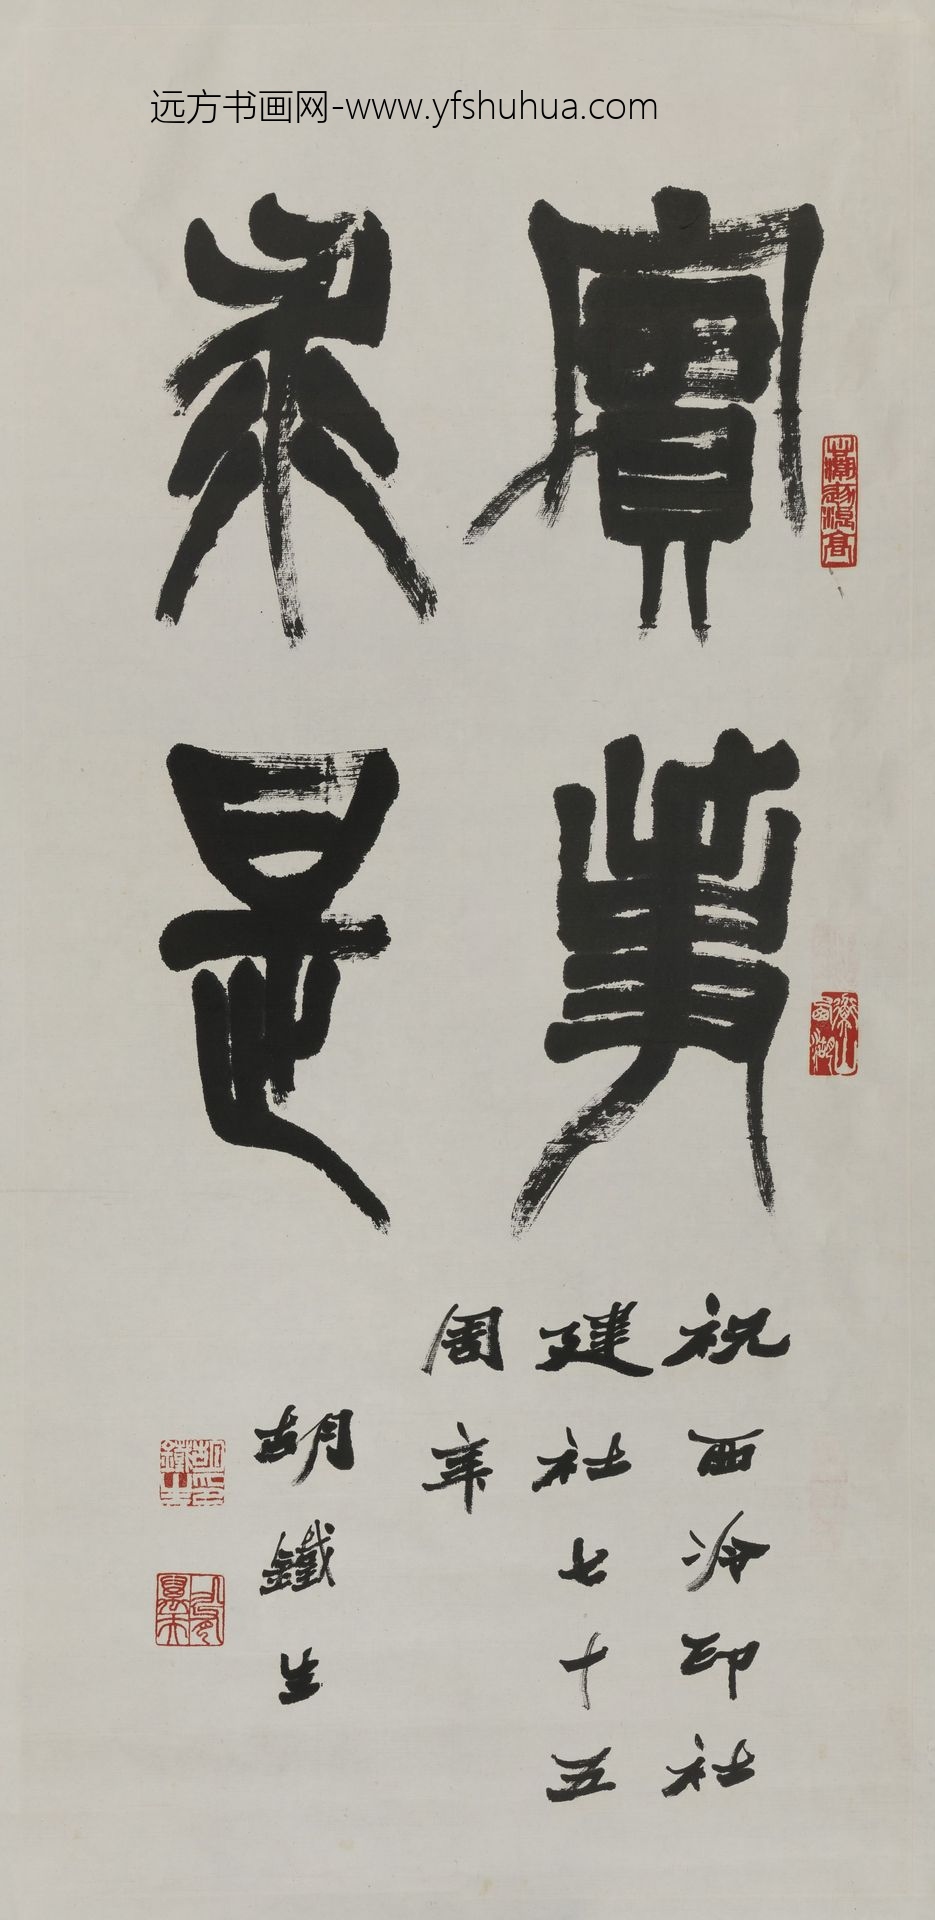 远方书画网-www.yfshuhua.com
實事
求是
祝西泠印社
建社七十五
周年
胡鐵生